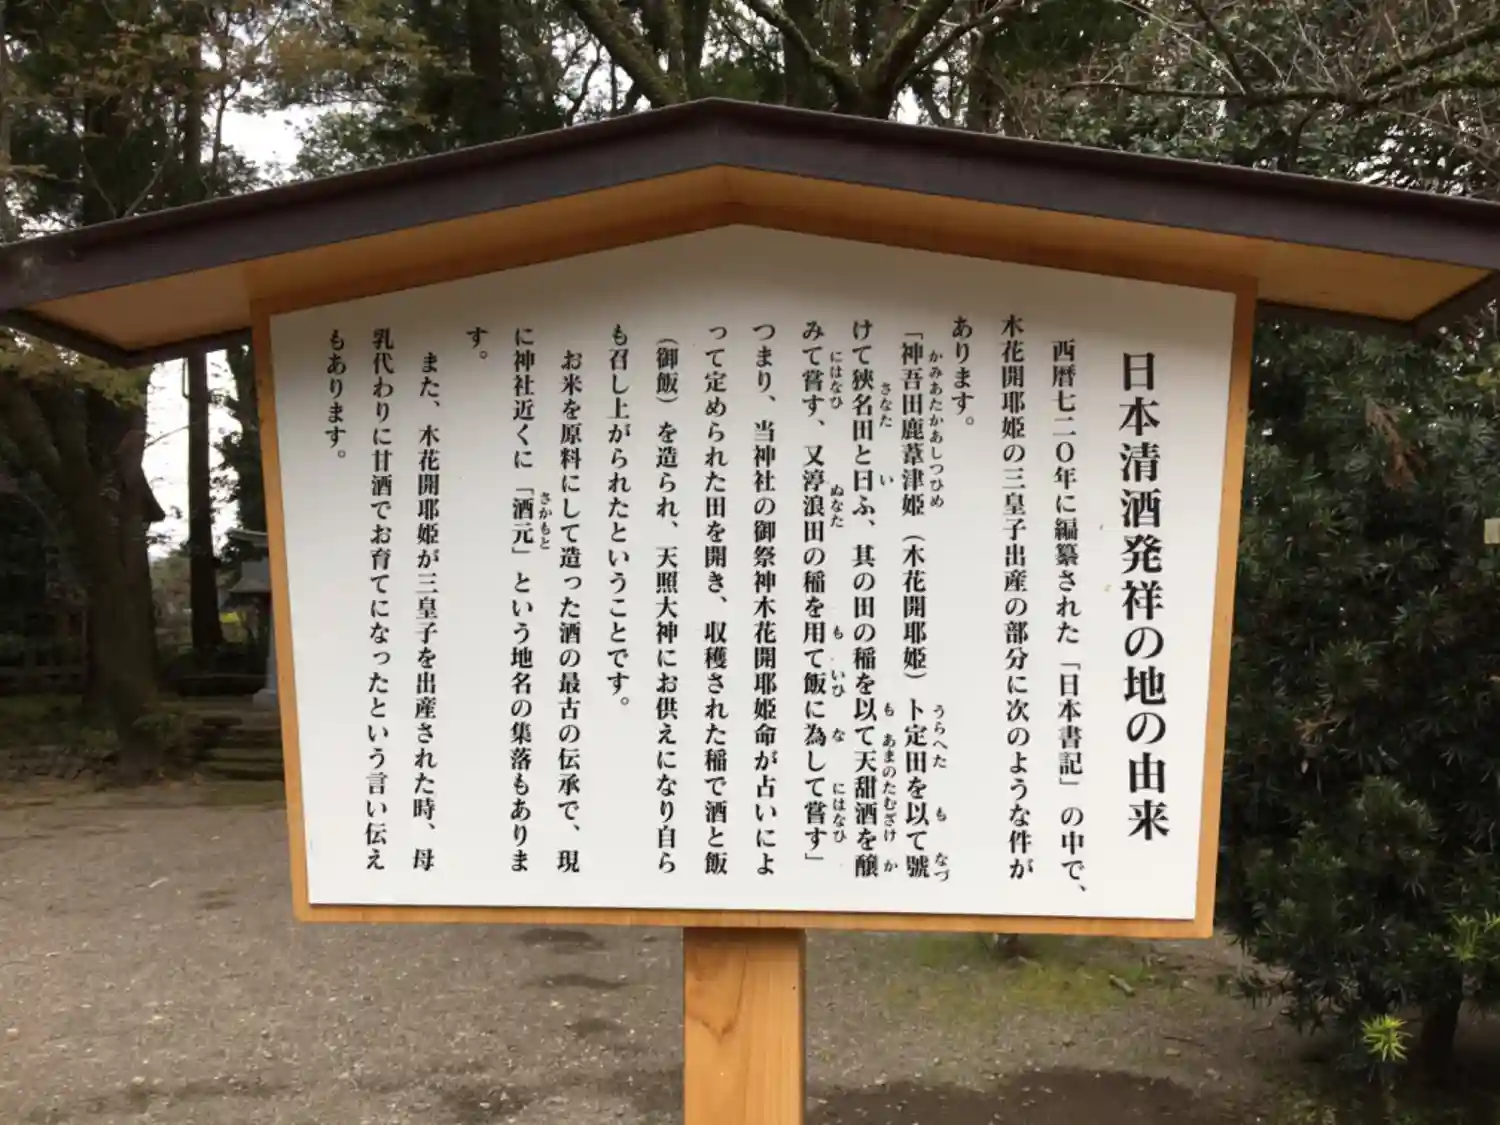 日本清酒発祥の地の由来
西暦七二〇年に編纂された「日本書記」の中で、
木花開耶姫の三皇子出産の部分に次のような件が
あります。
「神吾田鹿葦津姫（木花開耶姫）卜定田を以て號
かみあたかあしつひめ うらへた も なづ
けて狭名田と曰ふ、其の田の稲を以て天甜酒を醸
さなた い も あまのたむざけ か
みて嘗す、又渟浪田の稲を用て飯に為して嘗す」
にはなひ ぬなた も いひ な にはなひ
つまり、当神社の御祭神木花開耶姫命が占いによ
って定められた田を開き、収穫された稲で酒と飯
（御飯）を造られ、天照大神にお供えになり自ら
も召し上がられたということです。
お米を原料にして造った酒の最古の伝承で、現
に神社近くに「酒元」という地名の集落もありま
さかもと
す。
また、木花開耶姫が三皇子を出産された時、母
乳代わりに甘酒でお育てになったという言い伝え
もあります。